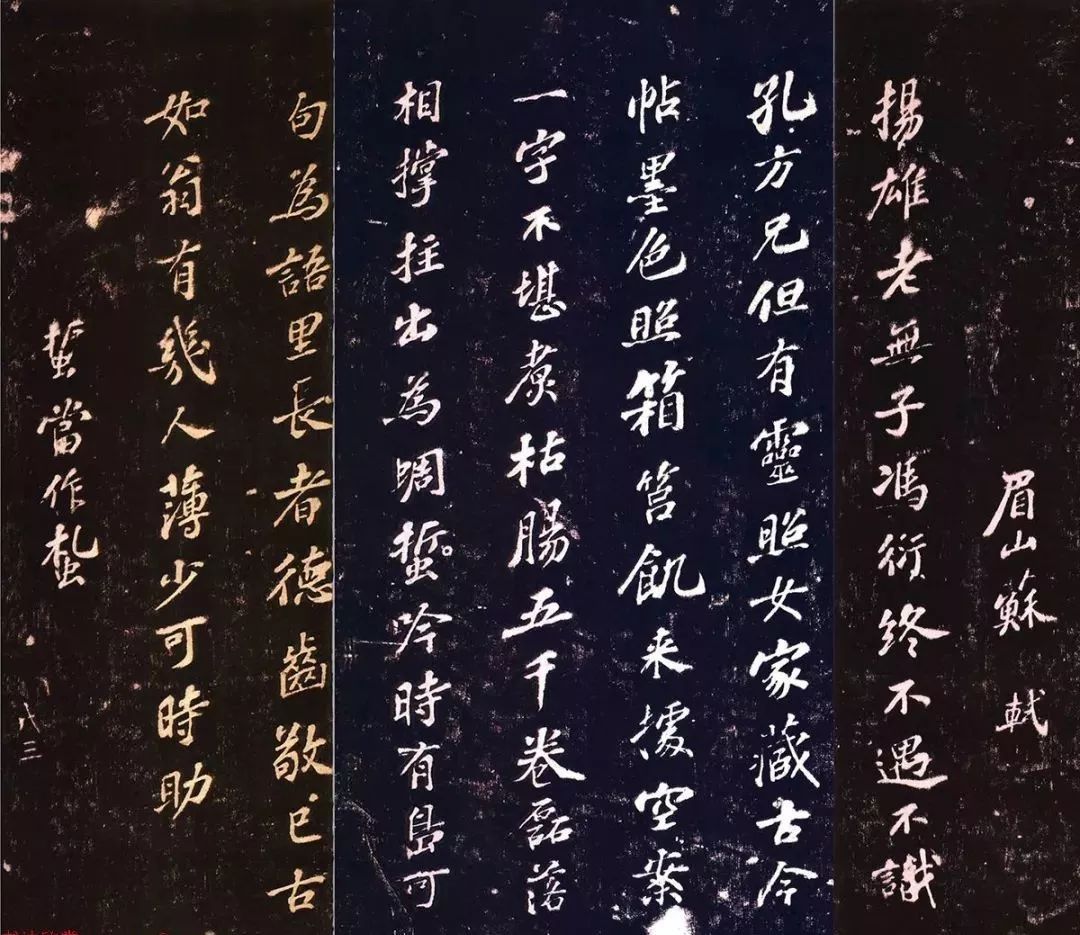 眉山蘇軾
揚雄老無子馮衍終不遇不識
孔方兄但有靈照女家藏古今
帖墨色照箱筥飢来據空案
一字不堪煑枯腸五千卷磊落
相撑拄出為蜩蜇吟時有島可
句為語里長者德齒敬已古
如翁有幾人薄少可時助
蜇當作蚻
八三